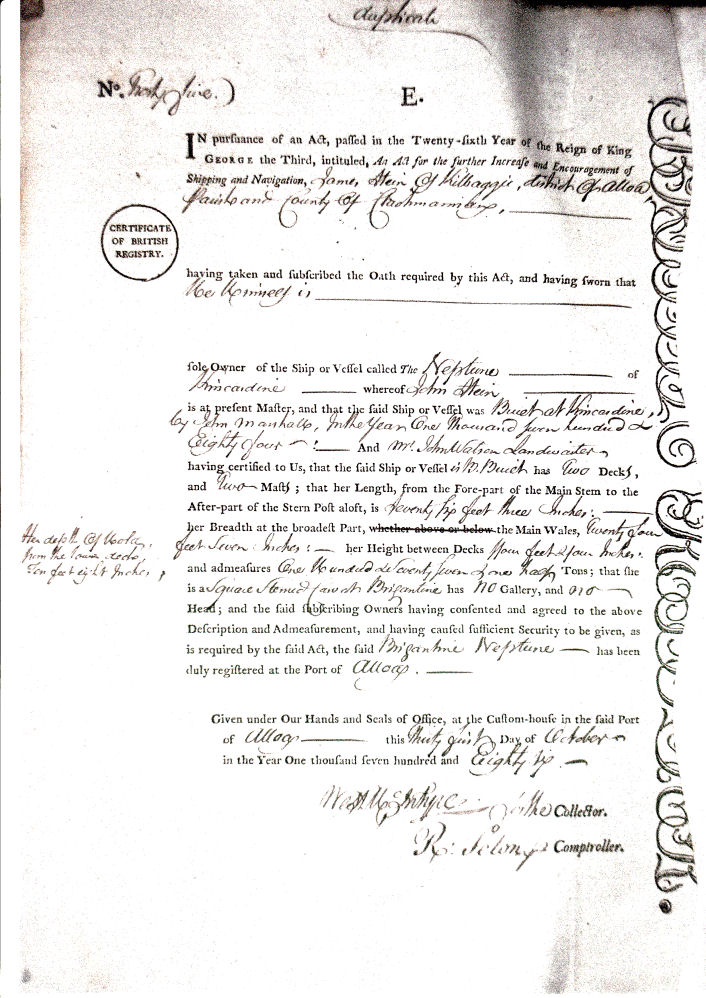 duplicate
No. Thirty five.)
E.
IN pursuance of an Act, passed in the Twenty-sixth Year of the Reign of King
GEORGE the Third, intituled, An Act for the further Increase and Encouragement of
Shipping and Navigation, James Stein Of Kilbaggie, district Of Alloa,
Parish and County Of Clackmannan,
CERTIFICATE
OF BRITISH
REGISTRY.
having taken and subscribed the Oath required by this Act, and having sworn that
He Himself is
sole Owner of the Ship or Vessel called The Neptune of
Kincardine whereof John Stein
is at present Master, and that the said Ship or Vessel was Built at Kincardine,
by John Marshall, In the Year One thousand seven hundred &
Eighty four And Mr. John Watson Landwaiter
having certified to Us, that the said Ship or Vessel is B. Built has Two Decks,
and Two Masts; that her Length, from the Fore-part of the Main Stem to the
After-part of the Stern Post aloft, is Seventy Six feet three Inches:
her Breadth at the broadest Part, whether above or below the Main Wales, Twenty four
feet Seven Inches: her Height between Decks ffour feet & four Inches.
Her depth Of
from the lower deck,
Ten feet eight Inches,
and admeasures One Hundred & Seventy seven & one half Tons; that she
is a Square Sterned Brigantine has NO Gallery, and no
Head; and the said subscribing Owners having consented and agreed to the above
Description and Admeasurement, and having caused sufficient Security to be given, as
is required by the said Act, the said Brigantine Neptune has been
duly registered at the Port of Alloa.
Given under Our Hands and Seals of Office, at the Custom-house in the said Port
of Alloa this thirty first Day of October
in the Year One thousand seven hundred and Eighty six
for the Collector.
Comptroller.